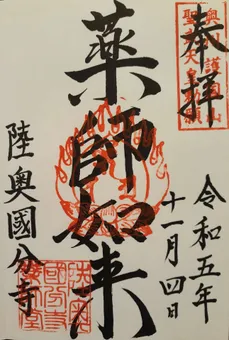 奉拝
令和五年
十一月四日
薬師如来
陸奥國分寺